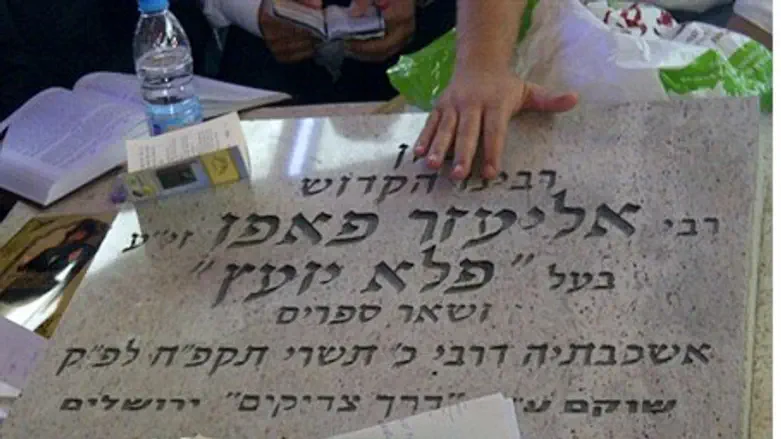 רבינו הקדוש
רבי אליעזר פאפו זי״ע
בעל "פלא יועץ"
ושאר ספרים
אשכבתיה דרבי כ׳ תשרי תקפ״ח לפ״ק
שוקם ע״י "דרך צדיקים" ירושלים